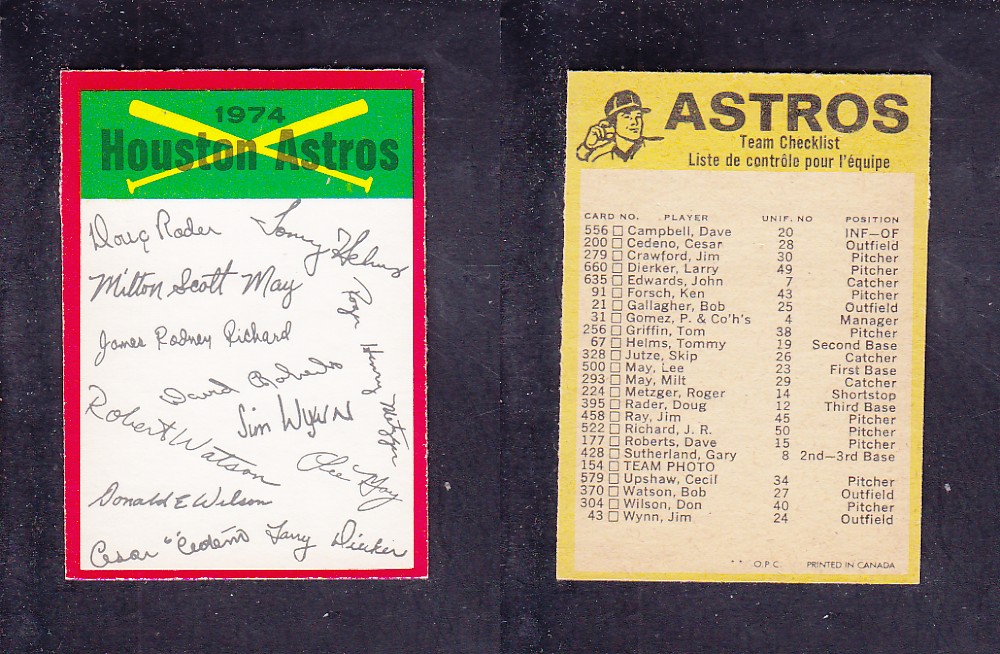 1974
Houston Astros
Doug Rader
Tommy Helms
Milton Scott May
Roger Henry Metzger
James Rodney Richard
David Roberts
Robert Watson
Jim Wynn
Lee May
Donald E Wilson
Cesar "Cedeño
Larry Dierker
ASTROS
Team Checklist
Liste de contrôle pour l'équipe
CARD NO. PLAYER UNIF. NO POSITION
556 Campbell, Dave 20 INF-OF
200 Cedeno, Cesar 28 Outfield
279 Crawford, Jim 30 Pitcher
660 Dierker, Larry 49 Pitcher
635 Edwards, John 7 Catcher
91 Forsch, Ken 43 Pitcher
21 Gallagher, Bob 25 Outfield
31 Gomez, P. & Co'h's 4 Manager
256 Griffin, Tom 38 Pitcher
67 Helms, Tommy 19 Second Base
328 Jutze, Skip 26 Catcher
500 May, Lee 23 First Base
293 May, Milt 29 Catcher
224 Metzger, Roger 14 Shortstop
395 Rader, Doug 12 Third Base
458 Ray, Jim 45 Pitcher
522 Richard, J. R. 50 Pitcher
177 Roberts, Dave 15 Pitcher
428 Sutherland, Gary 8 2nd-3rd Base
154 TEAM PHOTO
579 Upshaw, Cecil 34 Pitcher
370 Watson, Bob 27 Outfield
304 Wilson, Don 40 Pitcher
43 Wynn, Jim 24 Outfield
O.P.C. PRINTED IN CANADA